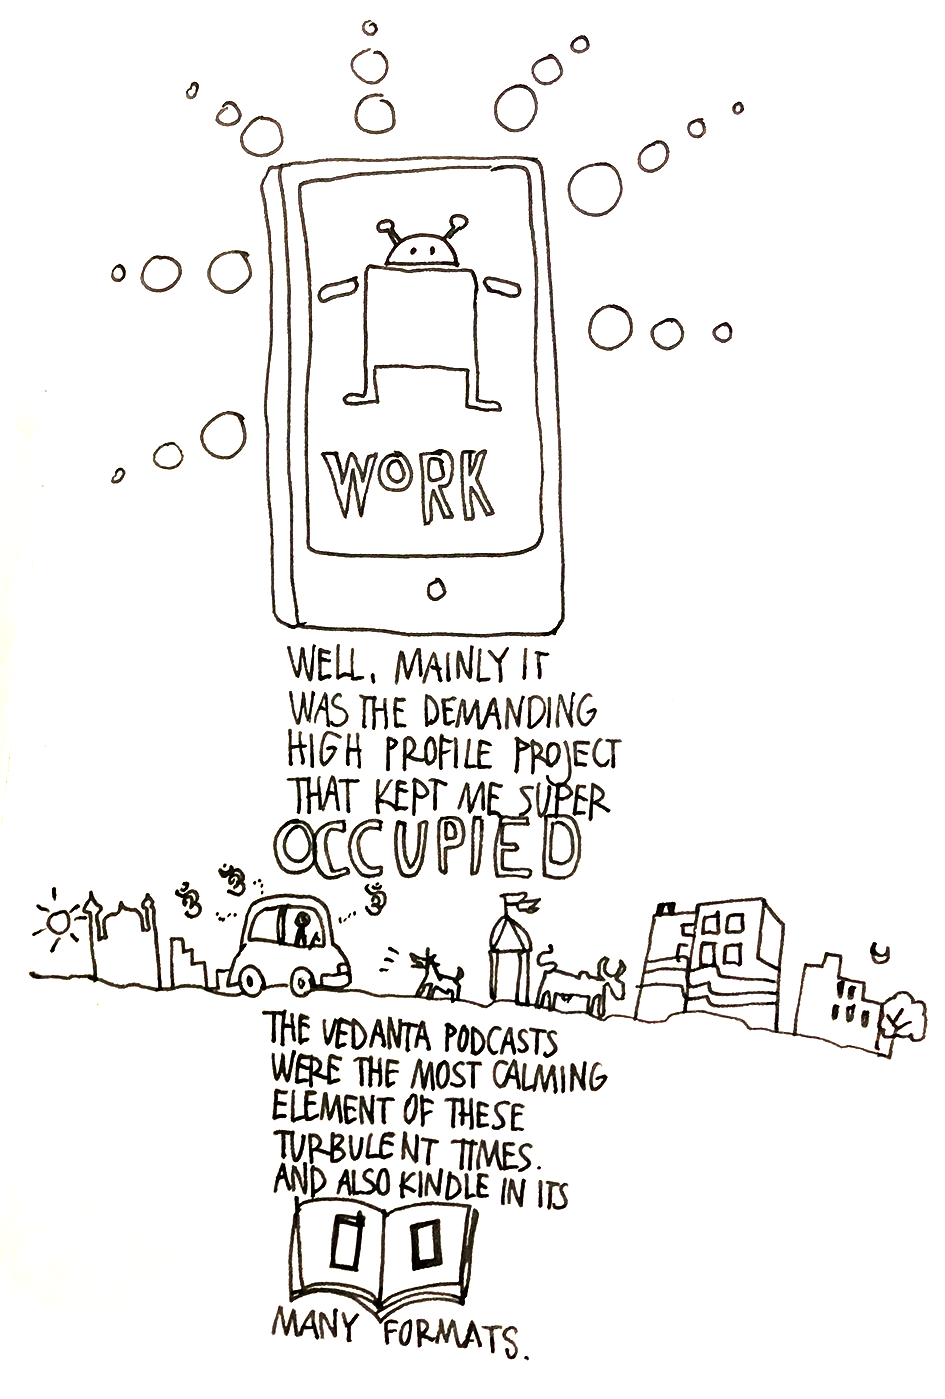 WORK
WELL, MAINLY IT
WAS THE DEMANDING
HIGH PROFILE PROJECT
THAT KEPT ME SUPER
OCCUPIED
ॐ ॐ ॐ
THE VEDANTA PODCASTS
WERE THE MOST CALMING
ELEMENT OF THESE
TURBULENT TIMES.
AND ALSO KINDLE IN ITS
MANY FORMATS.